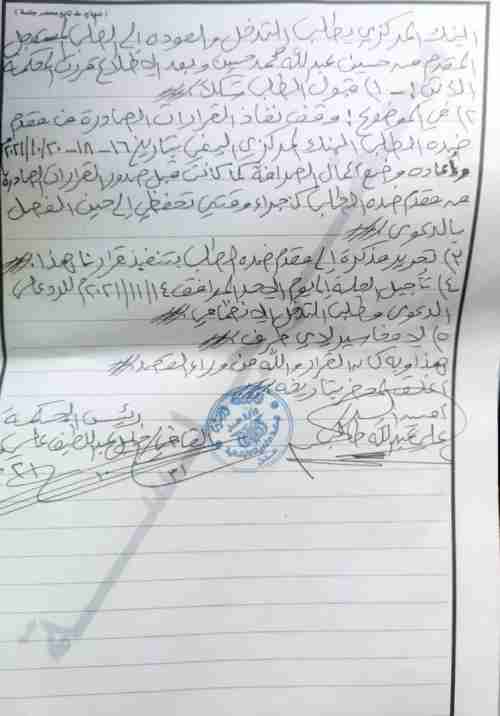 (نموذج خاص بمحضر جلسة)
البنك المركزي بطلب التدخل والعوده الى الطلب المستعجل
المقدم من حسين عبدالله محمد حسين وبعد الاطلاع قررت المحكمة
الاتي :- ١) قبول الطلب شكلا
٢) في الموضوع : وقف نفاذ القرارات الصادرة من مقدم
ضده الطلب البنك المركزي اليمني بتاريخ ١٦-١٨-٢٠/١٠/٢٠٢١م
واعاده وضع اعمال الصرافة كما كانت قبل صدور القرارات الصادرة
من مقدم ضده الطلب كاجراء وقتي تحفظي الى حين الفصل
بالدعوى
٣) تحرير مذكرة الى مقدم ضده الطلب بتنفيذ قرارنا هذا
٤) تأجيل الجلسة الى يوم الاحد الموافق ١٤/١١/٢٠٢١م للرد على
الدعوى وطلب التدخل الانضمامي
٥) لا مخاسير لاي طرف
هذا وبه كان القرار والله من وراء القصد
اغلق المحضر بتاريخه
امين السر رئيس المحكمة
علي عبدالله القاضي عبداللطيف
٣١ ١٠ ٢٠٢١